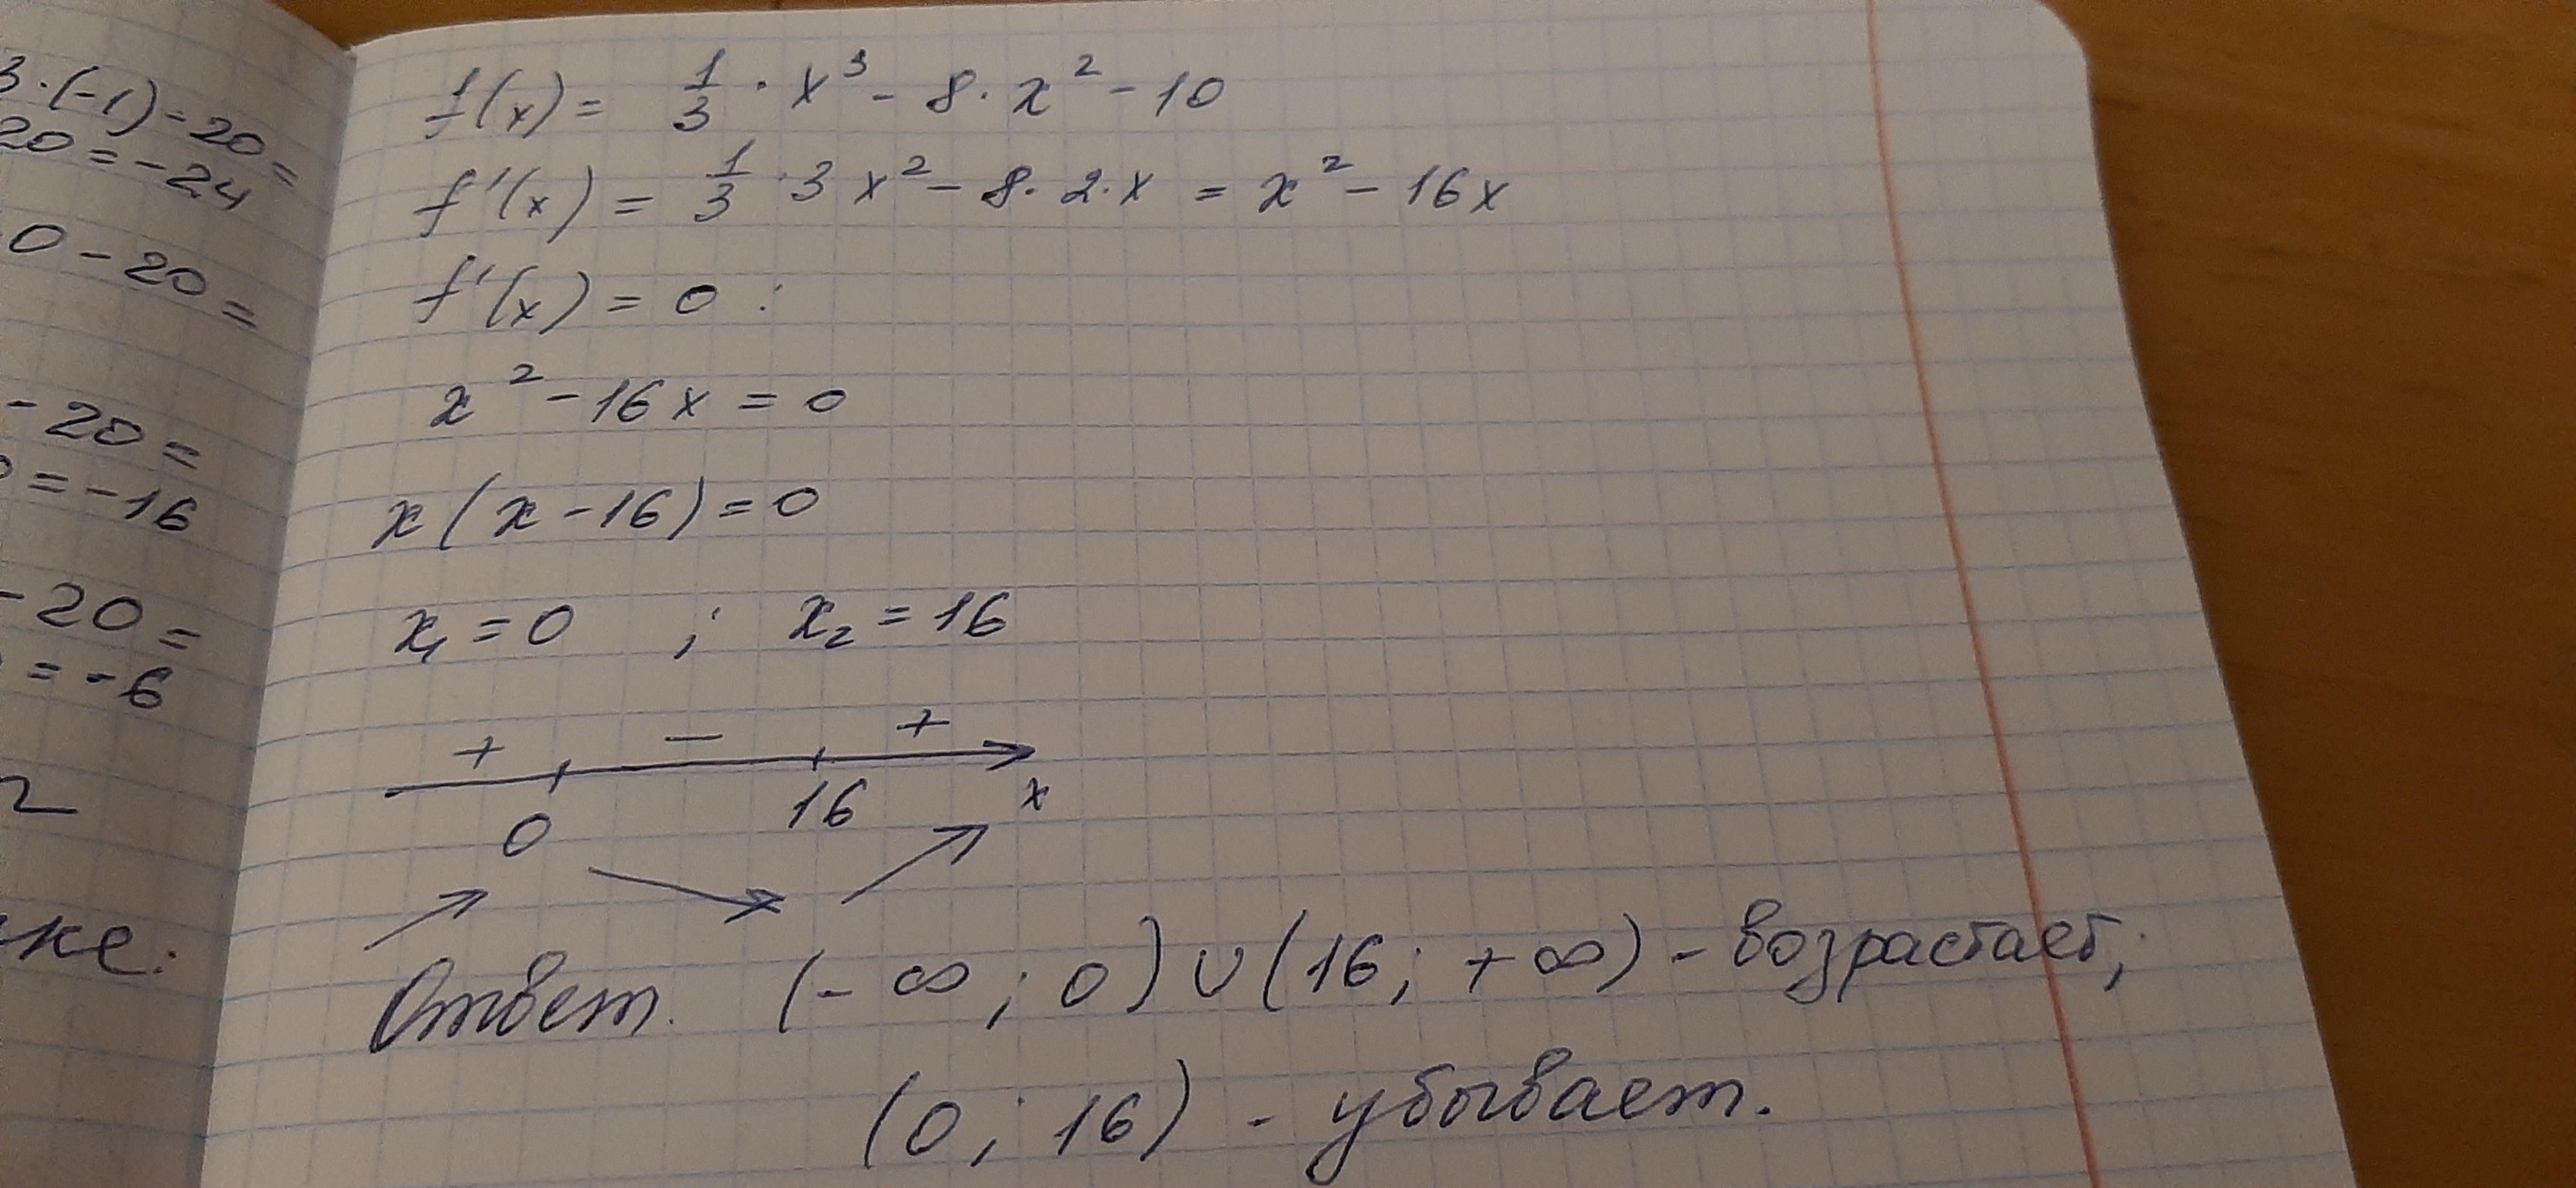 3·(-1)-20=
20=-24
0-20=
-20=
=-16
-20=
=-6
ке:
f(x)= 1/3 · x³ - 8·x² - 10
f'(x) = 1/3 · 3x² - 8·2·x = x² - 16x
f'(x) = 0 :
x² - 16x = 0
x(x-16)=0
x₁ = 0 ; x₂ = 16
+ − +
0 16 x
Ответ. (-∞; 0) ∪ (16; +∞) - возрастает;
(0; 16) - убывает.